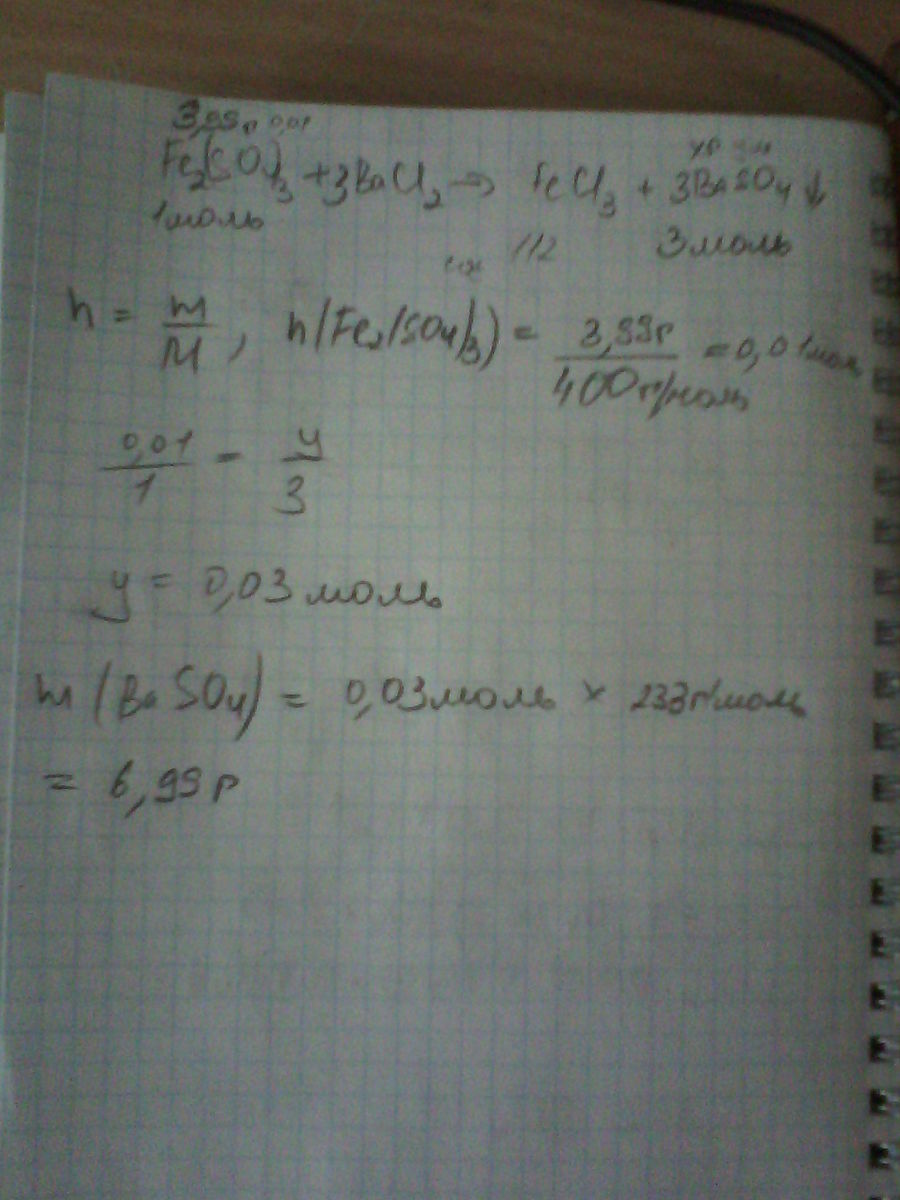 3,99г 0,01
Fe₂(SO)₃ + 3BaCl₂ → FeCl₃ + 3BaSO₄↓
1 моль 3 моль
112
n = m/M, n(Fe₂(SO₄)₃) = 3,99г/400г/моль = 0,01 моль
0,01/1 = y/3
y = 0,03 моль
m (BaSO₄) = 0,03 моль × 233г/моль
= 6,99г